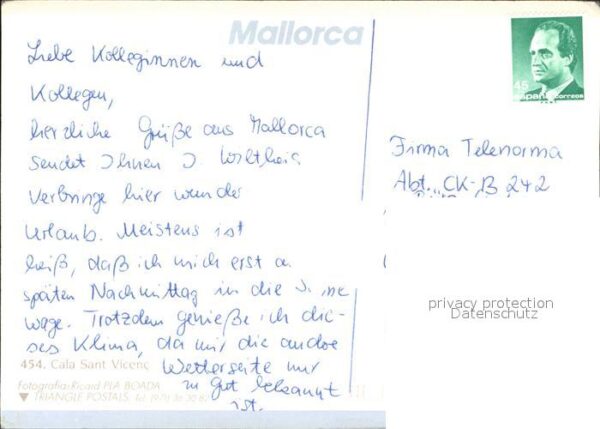 Mallorca
Liebe Kolleginnen und
Kollegen,
herzliche Grüße aus Mallorca
sendet Ihnen J.
Verbringe hier wunder
Urlaub. Meistens ist
heiß, daß ich mich erst a
späten Nachmittag in die S ne
wage. Trotzdem genieße ich die-
ses Klima, da mir die andre
Wetterseite nur
zu gut bekannt
ist.
454. Cala Sant Vicenc
fotografia: Ricard PLA BOADA
▼ TRIANGLE POSTALS. Tel. (971)
45
España correos
Firma Telenorma
Abt. CK-B 242
privacy protection
Datenschutz